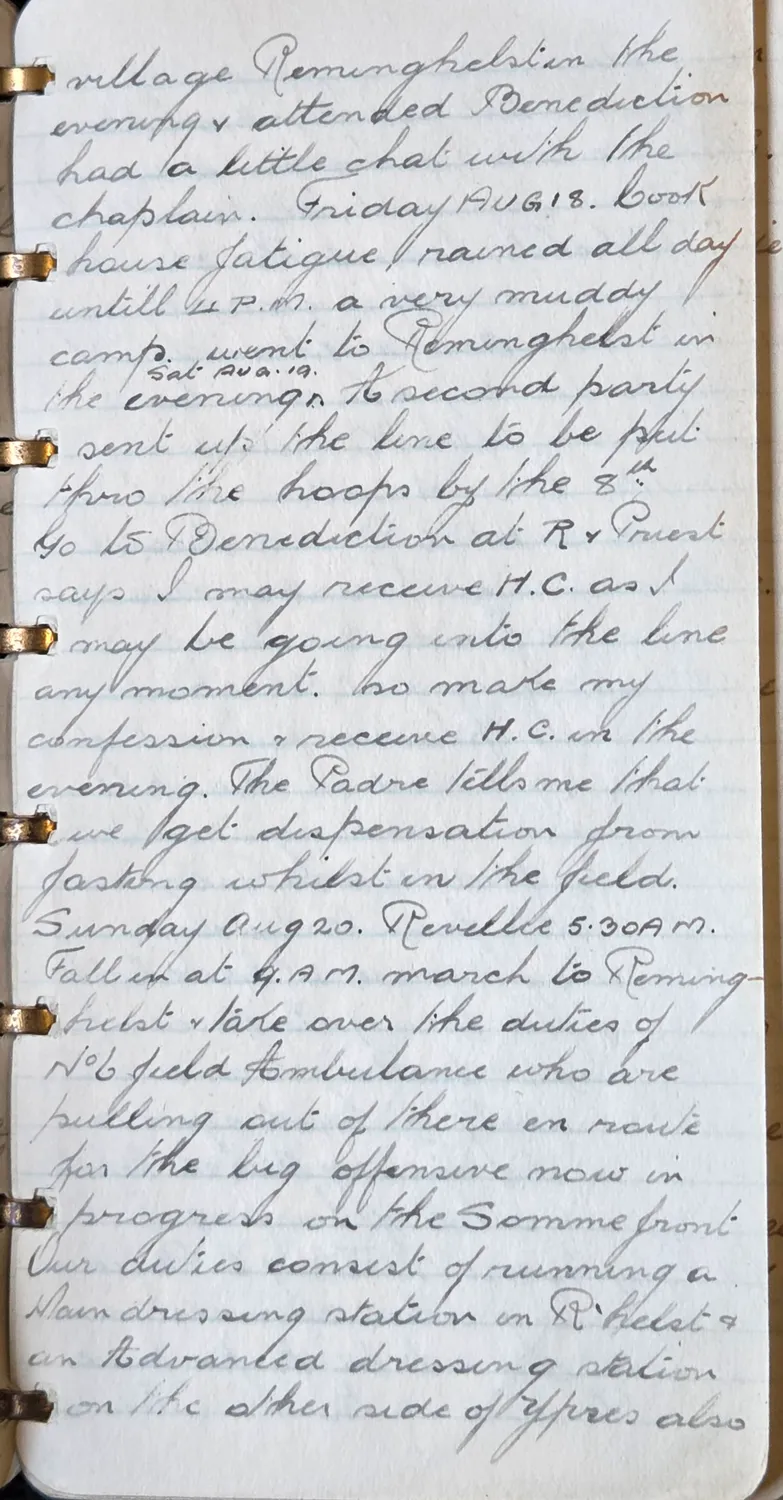 village Reminghelst in the
evening & attended Benediction
had a little chat with the
chaplain. Friday AUG 18. Cook
house fatigue, rained all day
untill 4 P.M. a very muddy
camp. went to Reminghelst in
Sat. AUG. 19.
the evening. A second party
sent up the line to be put
thro the hoops by the 8th.
Go to Benediction at R & Priest
says I may receive H.C. as I
may be going into the line
any moment. so make my
confession & receive H.C. in the
evening. The Padre tells me that
we get dispensation from
fasting whilst in the field.
Sunday Aug 20. Revellie 5.30 A M.
Fall in at 9. A M. march to Reming-
helst & take over the duties of
No 6 field Ambulance who are
pulling out of there en route
for the big offensive now in
progress on the Somme front
Our duties consist of running a
Main dressing station in R'helst &
an Advanced dressing station
on the other side of Ypres also